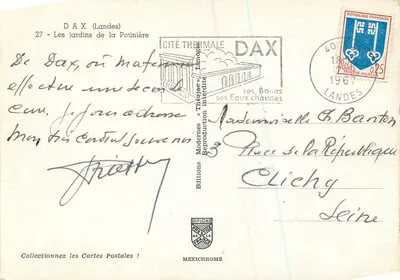 DAX (Landes)
27 - Les jardins de la Potinière
CITÉ THERMALE DAX
ses Boues
ses Eaux chaudes
40
18
196
LANDES
REPUBLIQUE FRANÇAISE
0,25
De Dax, où ma femme
effectue une de cure
cure. Je vous adresse
Mon très cordial souvenir
Mademoiselle Ch. Banton
3 Place de la République
Clichy
Seine
Editions Modernes "Théojac", Limoges
Reproduction interdite
MEXICHROME
Collectionnez les Cartes Postales !